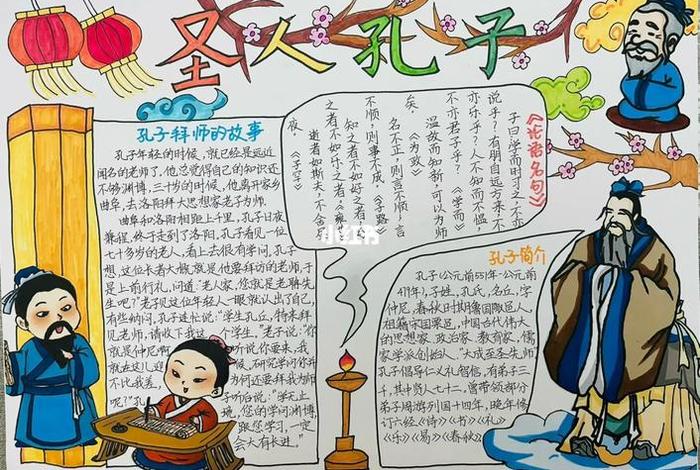 圣人孔子
孔子拜师的故事
孔子年轻的时候，就已经是远近
闻名的老师了，他总觉得自己的知识还
不够渊博，三十岁的时候，他离开家乡
曲阜，去洛阳拜大思想家老子为师。
曲阜和洛阳相距上千里，孔子日夜
兼程，终于走到了洛阳。孔子看见一位
七十多岁的老人，看上去很有学问，孔子
想，这位长者大概就是他要拜访的老师，于
是上前行礼，问道"老人家，您就是老聃先
生吧？"老子见这位年轻人一眼就认出了自己，
有些纳闷，孔子连忙说："学生孔丘，特来拜
见老师，请收下我这个学生。"老子说："你
就是仲尼啊，听说你要来，我
就在这儿迎候，研究学问你并
不比我差，为何还要拜我为师
呢？"孔子听后说："学无止
境，您的学问渊博，
跟您学习，一定
会大有长进。"
《论语名句》
子曰学而时习之不亦
说乎？有朋自远方来不
亦乐乎？人不知而不愠，
不亦君子乎？《学而》
温故而知新，可以为师
矣。《为政》
名不正，则言不顺，言
不顺，则事不成。《子路》
知之者不如好之者，好
之者不如乐之者。《雍
逝者如斯夫，不舍昼
夜。《子罕》
小红书
孔子简介
孔子(公元前551年-公元前
479年)，子姓，孔氏，名丘，字
仲尼，春秋时期鲁国陬邑人，
祖籍宋国栗邑，中国古代伟大
的思想家、政治家、教育家，儒
家学派创始人、"大成至圣先师"
孔子倡导仁义礼智信，有弟子三
千，其中贤人七十二，曾带领部分
弟子周游列国十四年，晚年修
订六经《诗》《书》《礼》
《乐》《易》《春秋》